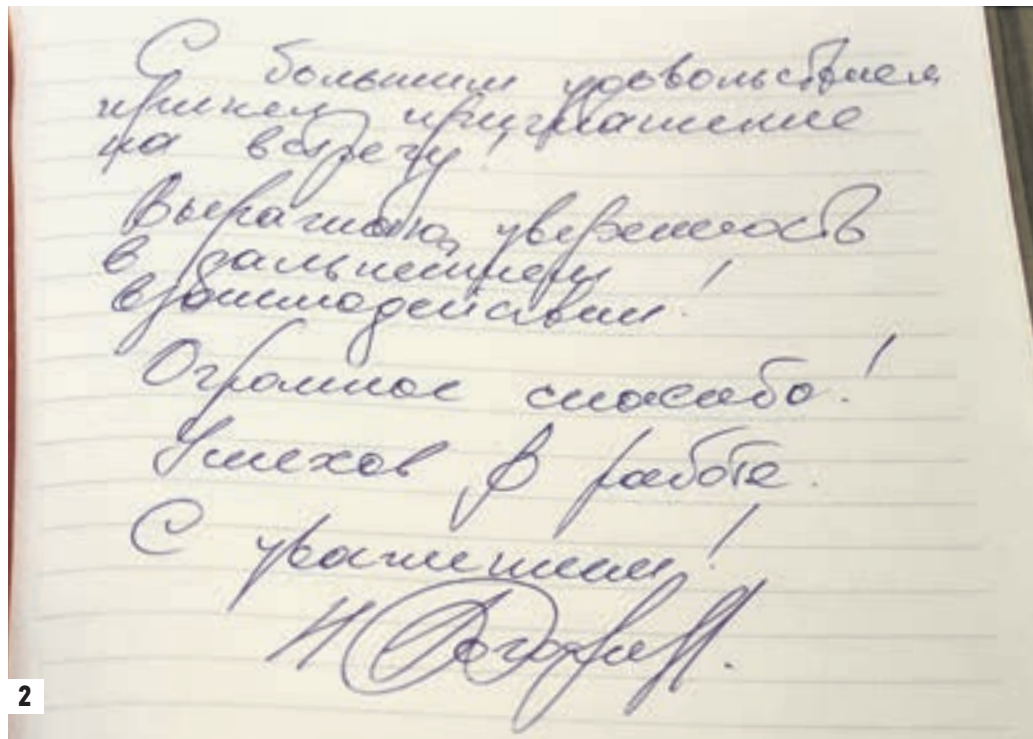 С большим удовольствием
принял приглашение
на встречу!
Выражаю уверенность
в дальнейшем
взаимодействии!
Огромное спасибо!
Успехов в работе.
С уважением!
2